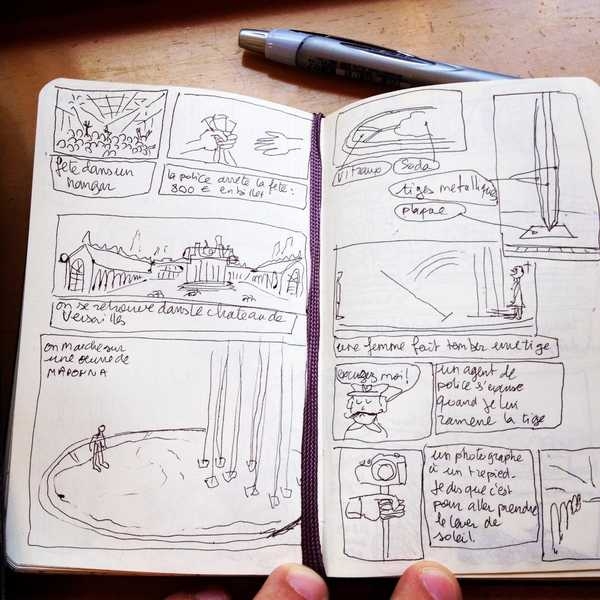 fête dans un
hangar
la police arrête la fête:
800 € en billet
on se retrouve dans le chateau de
Versailles
on marche sur
une œuvre de
MADONNA
Vitraux
Soda
tiges métalliques
plaque
une femme fait tomber une tige
excusez moi!
un agent de
police s'excuse
quand je lui
ramène la tige
un photographe
a un trepied.
Je dis que c'est
pour aller prendre
le lever de
soleil.